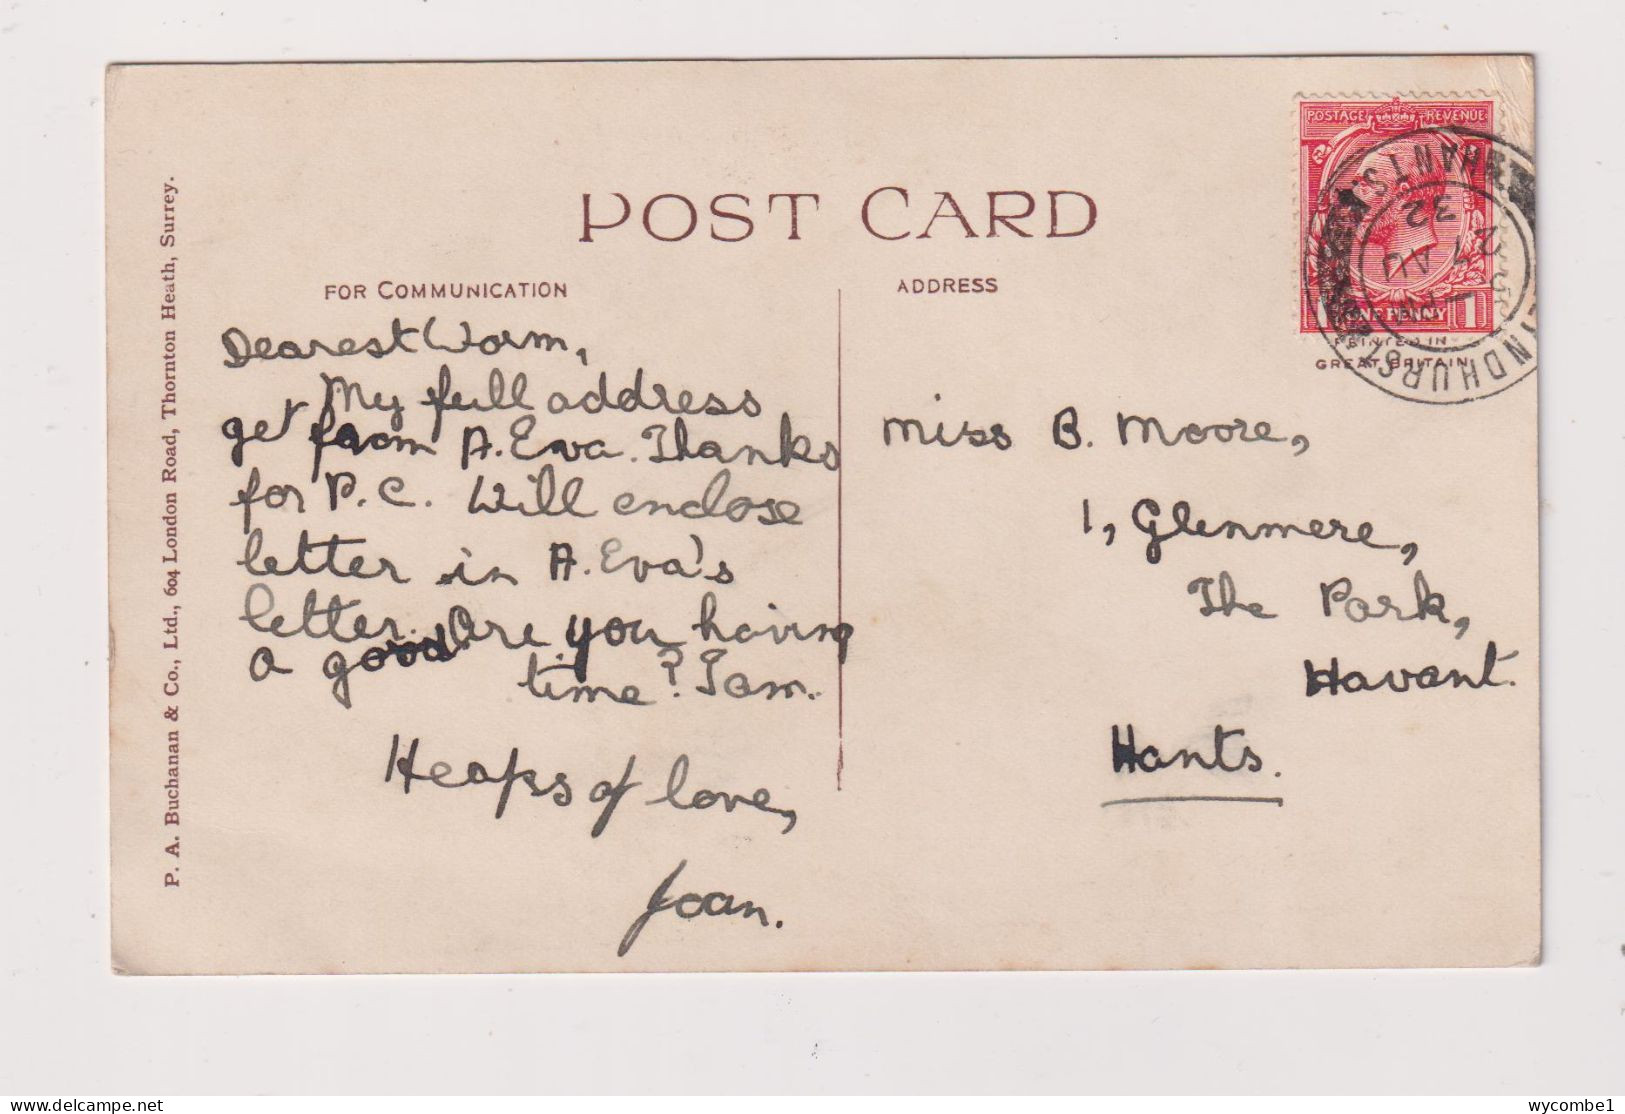 POST CARD
FOR COMMUNICATION
Dearest Worm,
My full address
get from A. Eva. Thanks
for P.C. Will enclose
letter in A. Eva's
letter. Are you having
a good
time? I am.
Heaps of love,
Joan.
ADDRESS
Miss B. Moore,
1, Glenmere,
The Park,
Havant.
Hants.
POSTAGE REVENUE
1 ONE PENNY 1
PRINTED IN
GREAT BRITAIN
LYNDHURST HANTS.
PM
27 AU
32
P. A. Buchanan & Co., Ltd., 604 London Road, Thornton Heath, Surrey.
wycombe1